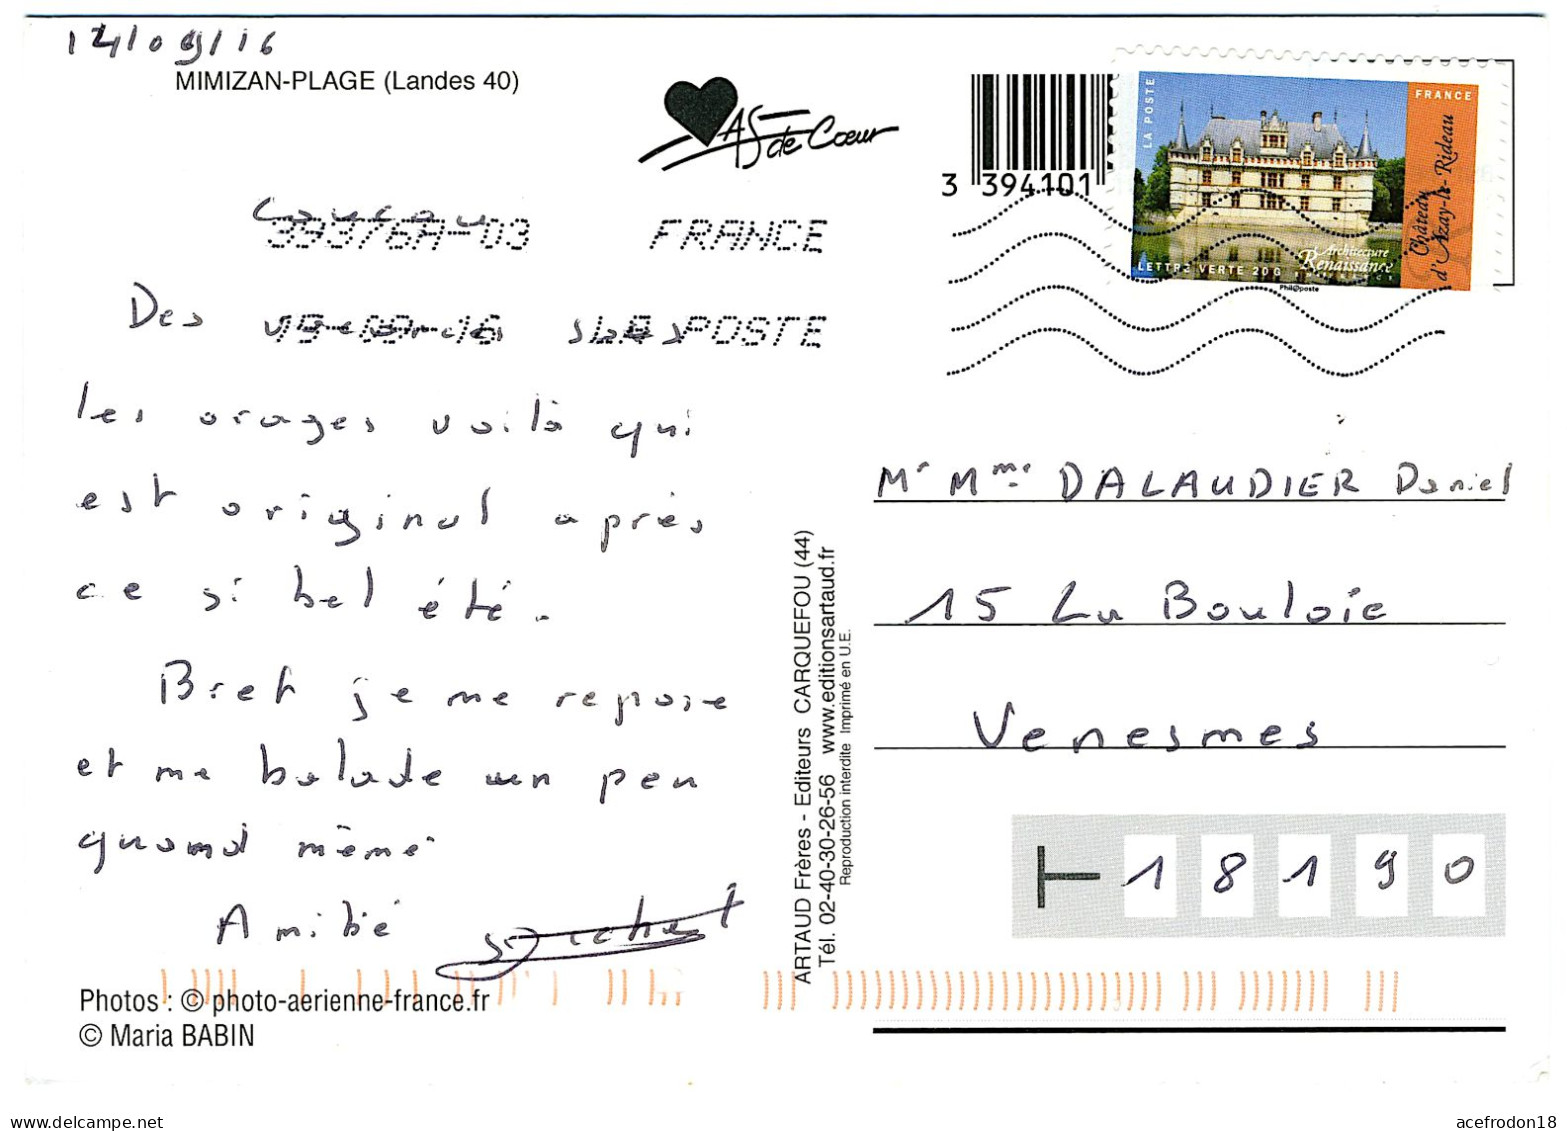 14/09/16
MIMIZAN-PLAGE (Landes 40)
As de Cœur
3 394101
LA POSTE
FRANCE
Château
d'Azay-le-Rideau
Architecture
Renaissance
LETTRE VERTE 20G
Phil@poste
Coucou
39376A-03 FRANCE
15-09-16 LA POSTE
Des vacances sous
les orages voilà qui
est original après
ce si bel été.
Bref je me repose
et me balade un peu
quand même
Amitié
Photos : © photo-aerienne-france.fr
© Maria BABIN
ARTAUD Frères - Editeurs CARQUEFOU (44)
Tél. 02-40-30-26-56 www.editionsartaud.fr
Reproduction interdite Imprimé en U.E.
Mr Mme DALAUDIER Daniel
15 La Bouloie
Venesmes
18190
www.delcampe.net
acefrodon18